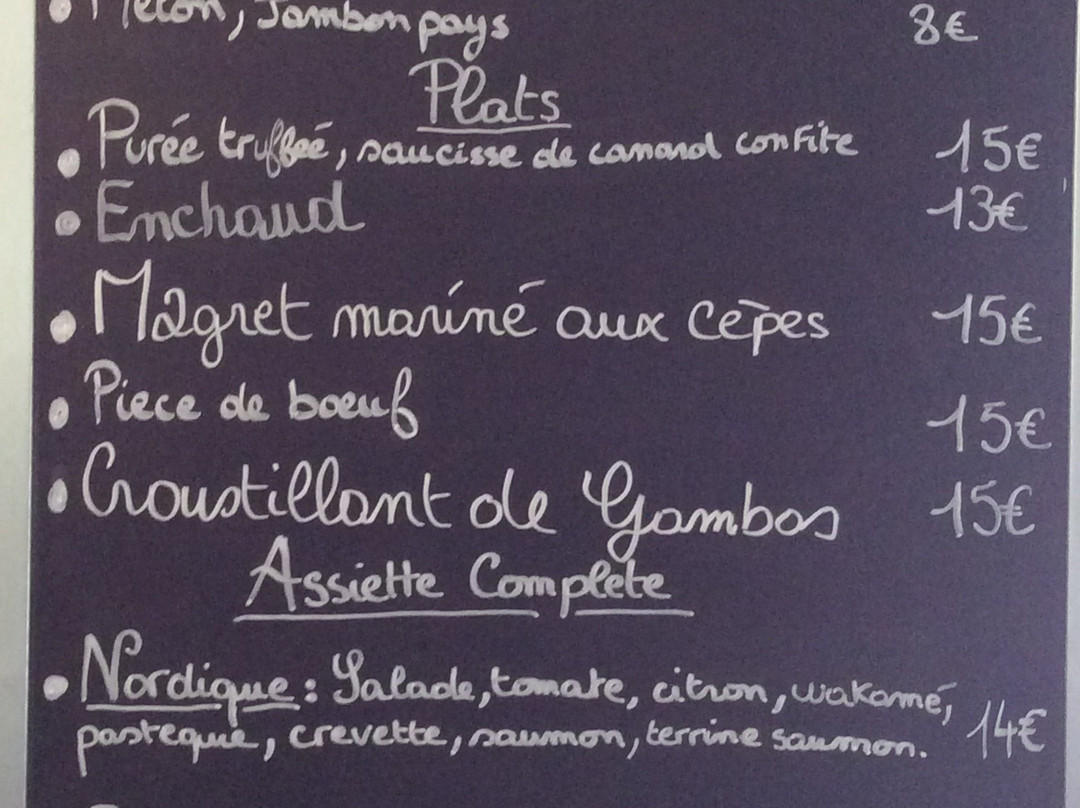 Melon, Jambon pays 8€
Plats
Purée truffeé, saucisse de canard confite 15€
Enchaud 13€
Magret mariné aux cèpes 15€
Piece de boeuf 15€
Croustillant de Gambas 15€
Assiette Complete
Nordique: Salade, tomate, citron, wakamé,
pasteque, crevette, saumon, terrine saumon. 14€